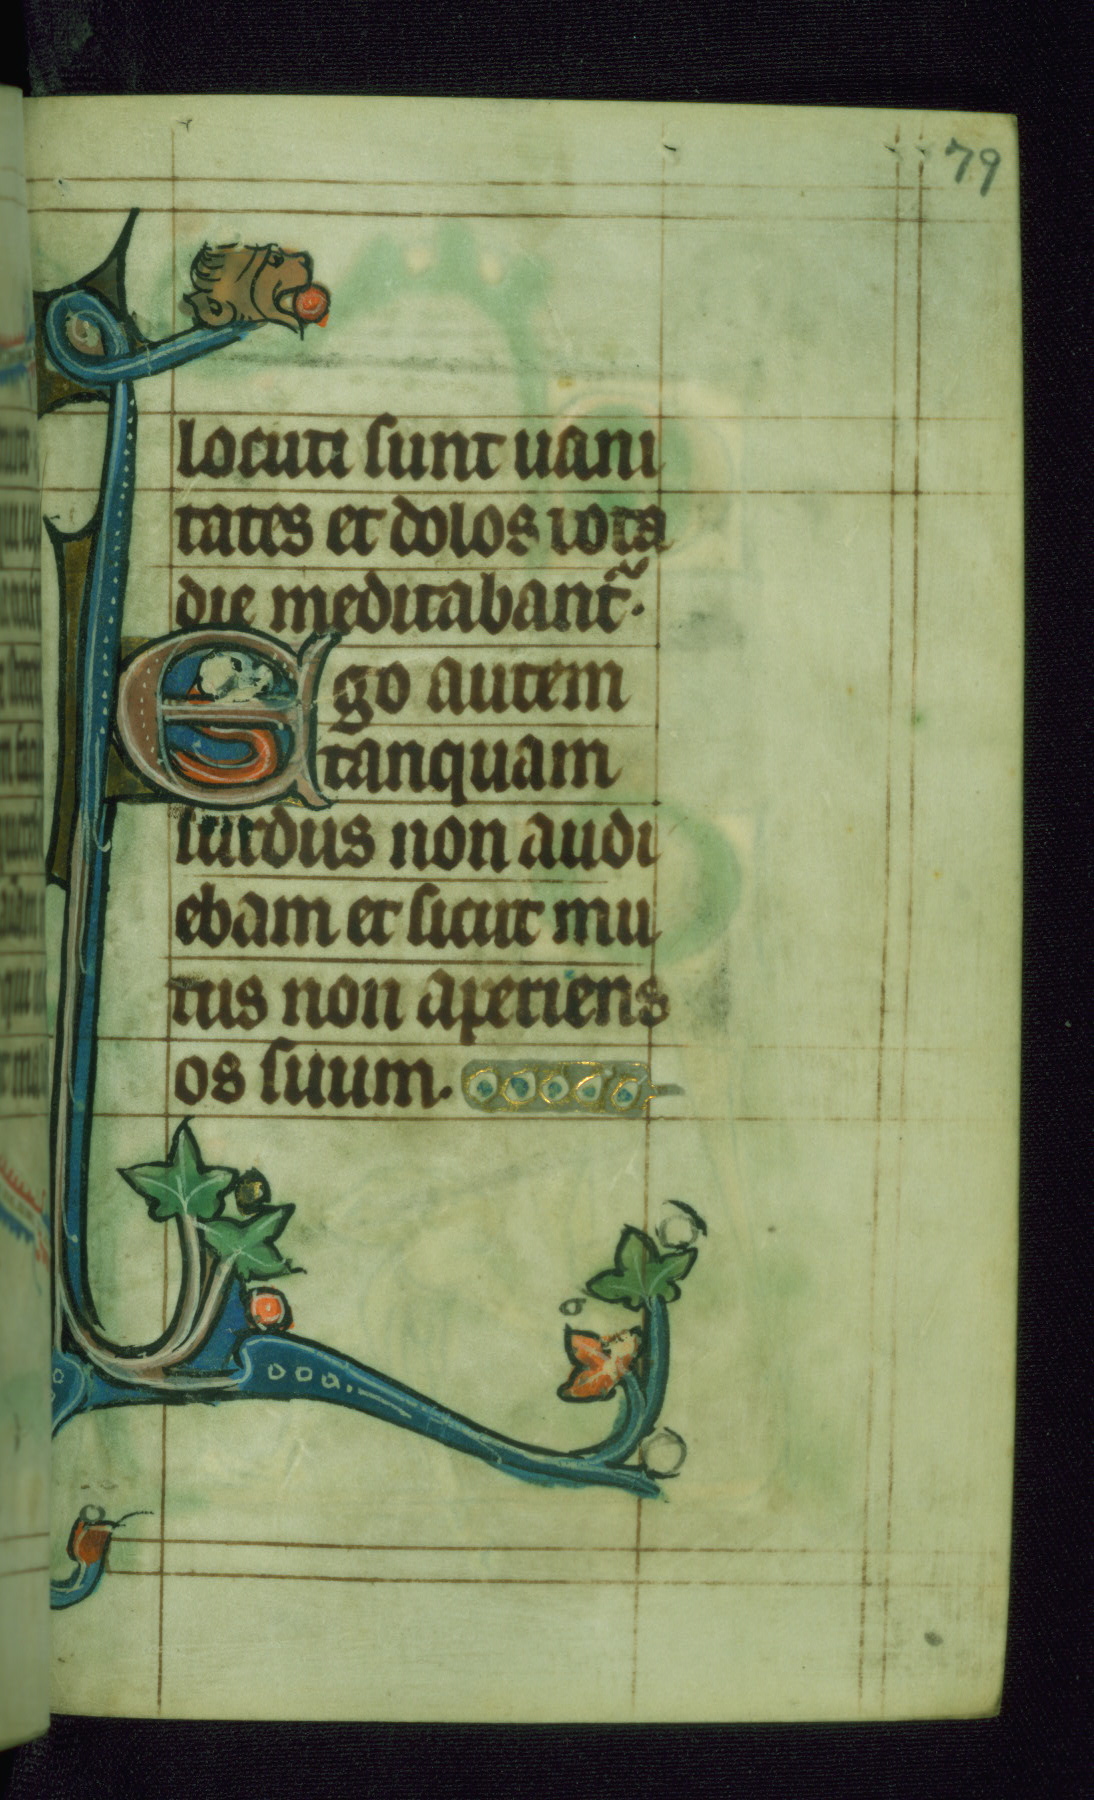 79
locuti sunt uani
tates et dolos tota
die meditabant᷑.
Ego autem
tanquam
surdus non audi
ebam et sicut mu
tus non aperiens
os suum.